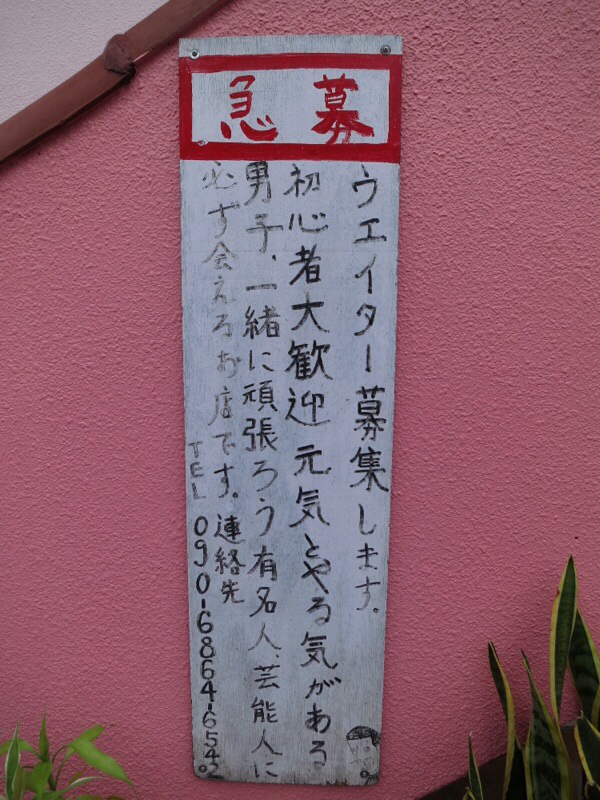 急募
ウエイター募集します。
初心者大歓迎 元気とやる気がある
男子、一緒に頑張ろう有名人、芸能人に
必ず会えるお店です。連絡先
TEL 090-6864-6542